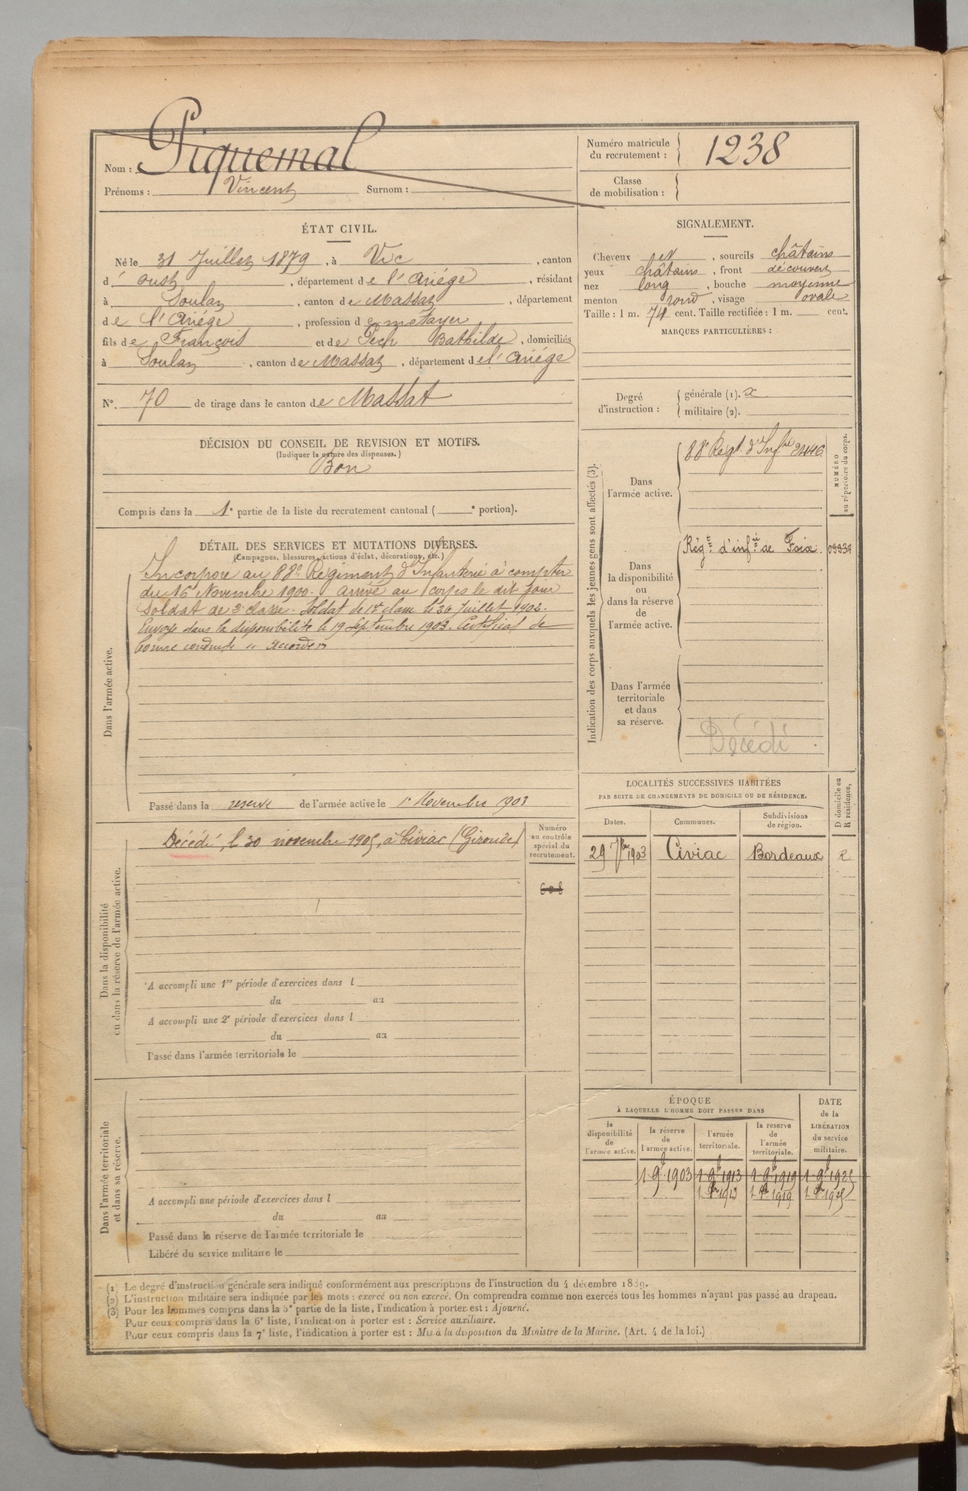 Nom : Piquemal
Prénoms : Vincent Surnom :
Numéro matricule du recrutement : 1238
Classe de mobilisation :
ÉTAT CIVIL.
Né le 31 Juillet 1879, à Vic, canton
d' oust, département de l'Ariége, résidant
à Soulan, canton de Massat, département
de l'Ariége, profession de métayer
fils de François et de Pech Bathilde, domiciliés
à Soulan, canton de Massat, département de l'Ariége
N°. 70 de tirage dans le canton de Massat
SIGNALEMENT.
Cheveux et, sourcils châtains
yeux châtains, front découvert
nez long, bouche moyenne
menton rond, visage ovale
Taille : 1 m. 74 cent. Taille rectifiée : 1 m. cent.
MARQUES PARTICULIÈRES :
Degré d'instruction :
générale (1).
militaire (2).
DÉCISION DU CONSEIL DE REVISION ET MOTIFS.
(Indiquer la nature des dispenses.)
Bon
Compris dans la 1e partie de la liste du recrutement cantonal ( e portion).
DÉTAIL DES SERVICES ET MUTATIONS DIVERSES.
(Campagnes, blessures, actions d'éclat, décorations, etc.)
Dans l'armée active.
Incorporé au 88e Régiment d'Infanterie à compter
du 16 Novembre 1900. arrivé au corps le dit jour
Soldat de 2e classe. Soldat de 1re classe le 30 Juillet 1902.
Envoyé dans la disponibilité le 19 Septembre 1903. Certificat de
bonne conduite "accordé"
Passé dans la reserve de l'armée active le 1er Novembre 1903
Indication des corps auxquels les jeunes gens sont affectés (3).
NUMÉRO au répertoire du corps.
Dans l'armée active.
88e Régt d'Infie
Dans la disponibilité ou dans la réserve de l'armée active.
Régt d'infie de Foix.
Dans l'armée territoriale et dans sa réserve.
Décédé
Dans la disponibilité ou dans la réserve de l'armée active.
Décédé, le 30 novembre 1905, à Civiac (Gironde)
Numéro au contrôle spécial du recrutement.
A accompli une 1re période d'exercices dans l
du au
A accompli une 2e période d'exercices dans l
du au
Passé dans l'armée territoriale le
LOCALITÉS SUCCESSIVES HABITÉES
PAR SUITE DE CHANGEMENTS DE DOMICILE OU DE RÉSIDENCE.
Dates. Communes. Subdivisions de région. D domicile ou R résidence.
29 7bre 1903 Civiac Bordeaux R
Dans l'armée territoriale et dans sa réserve.
A accompli une période d'exercices dans l
du au
Passé dans la réserve de l'armée territoriale le
Libéré du service militaire le
ÉPOQUE
À LAQUELLE L'HOMME DOIT PASSER DANS
DATE de la LIBÉRATION du service militaire.
la disponibilité de l'armée active. la réserve de l'armée active. l'armée territoriale. la réserve de l'armée territoriale.
1 9b 1903 1 9b 1913 1 9b 1919 1 9b 1925
1913 1919
(1) Le degré d'instruction générale sera indiqué conformément aux prescriptions de l'instruction du 4 décembre 1889.
(2) L'instruction militaire sera indiquée par les mots : exercé ou non exercé. On comprendra comme non exercés tous les hommes n'ayant pas passé au drapeau.
(3) Pour les hommes compris dans la 5e partie de la liste, l'indication à porter est : Ajourné.
Pour ceux compris dans la 6e liste, l'indication à porter est : Service auxiliaire.
Pour ceux compris dans la 7e liste, l'indication à porter est : Mis à la disposition du Ministre de la Marine. (Art. 4 de la loi.)